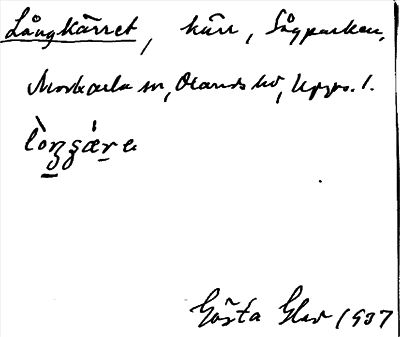 Långkärret, kärr, Sågparken,
Morkarla sn, Olands hd, Upps. l.
Gösta Glas 1937